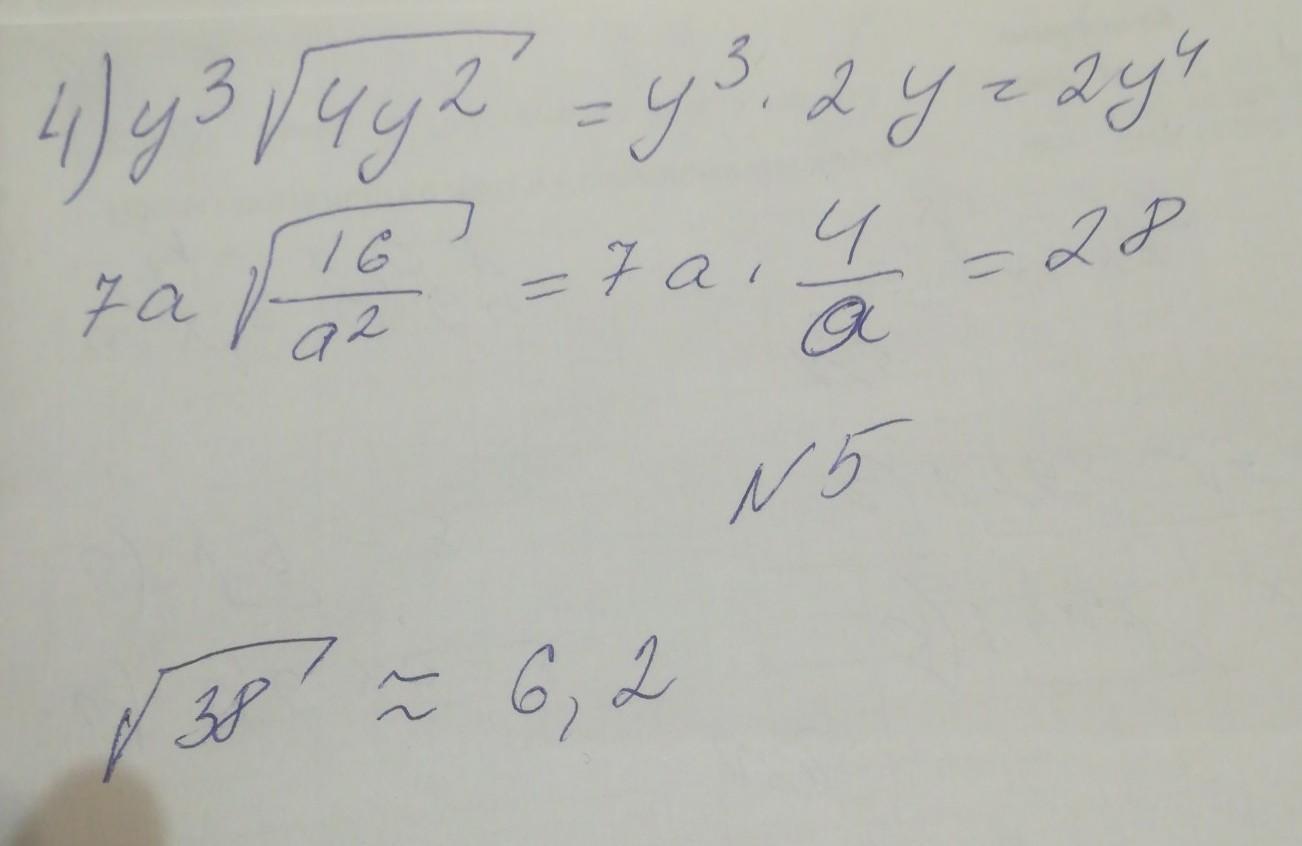 4) y³ √(4y²) = y³ · 2y = 2y⁴
7a √(16/a²) = 7a · 4/a = 28
N5
√38 ≈ 6,2